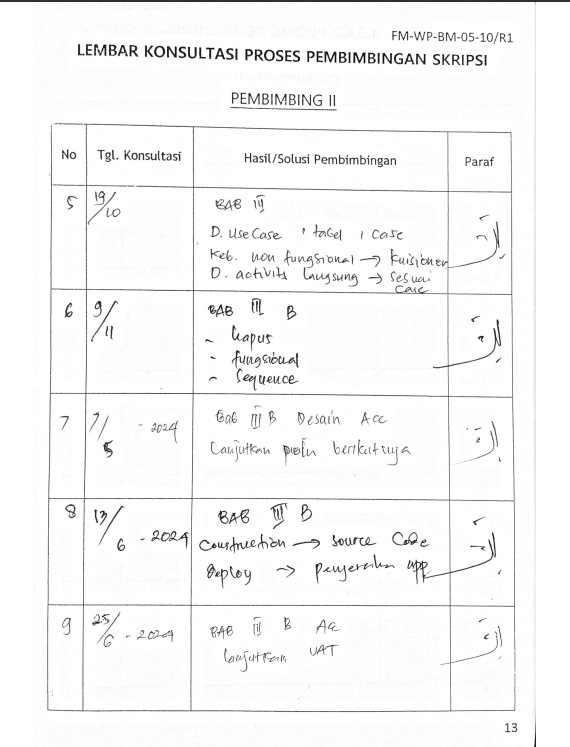 FM-WP-BM-05-10/R1
LEMBAR KONSULTASI PROSES PEMBIMBINGAN SKRIPSI
PEMBIMBING II
No Tgl. Konsultasi Hasil/Solusi Pembimbingan Paraf
5 19/10 BAB III
D. Use Case 1 tabel 1 case
Keb. non fungsional → Kuisioner
D. activits langsung → sesuai
case
6 9/11 BAB III B
- kapus
- fungsional
- Sequence
7 7/5 - 2024 Bab III B Desain Acc
Lanjutkan berikutnya
8 13/6 - 2024 BAB III B
Construction → source Code
Deploy → penyerahan app
9 25/6 - 2024 BAB III B Acc
lanjutkan UAT
13